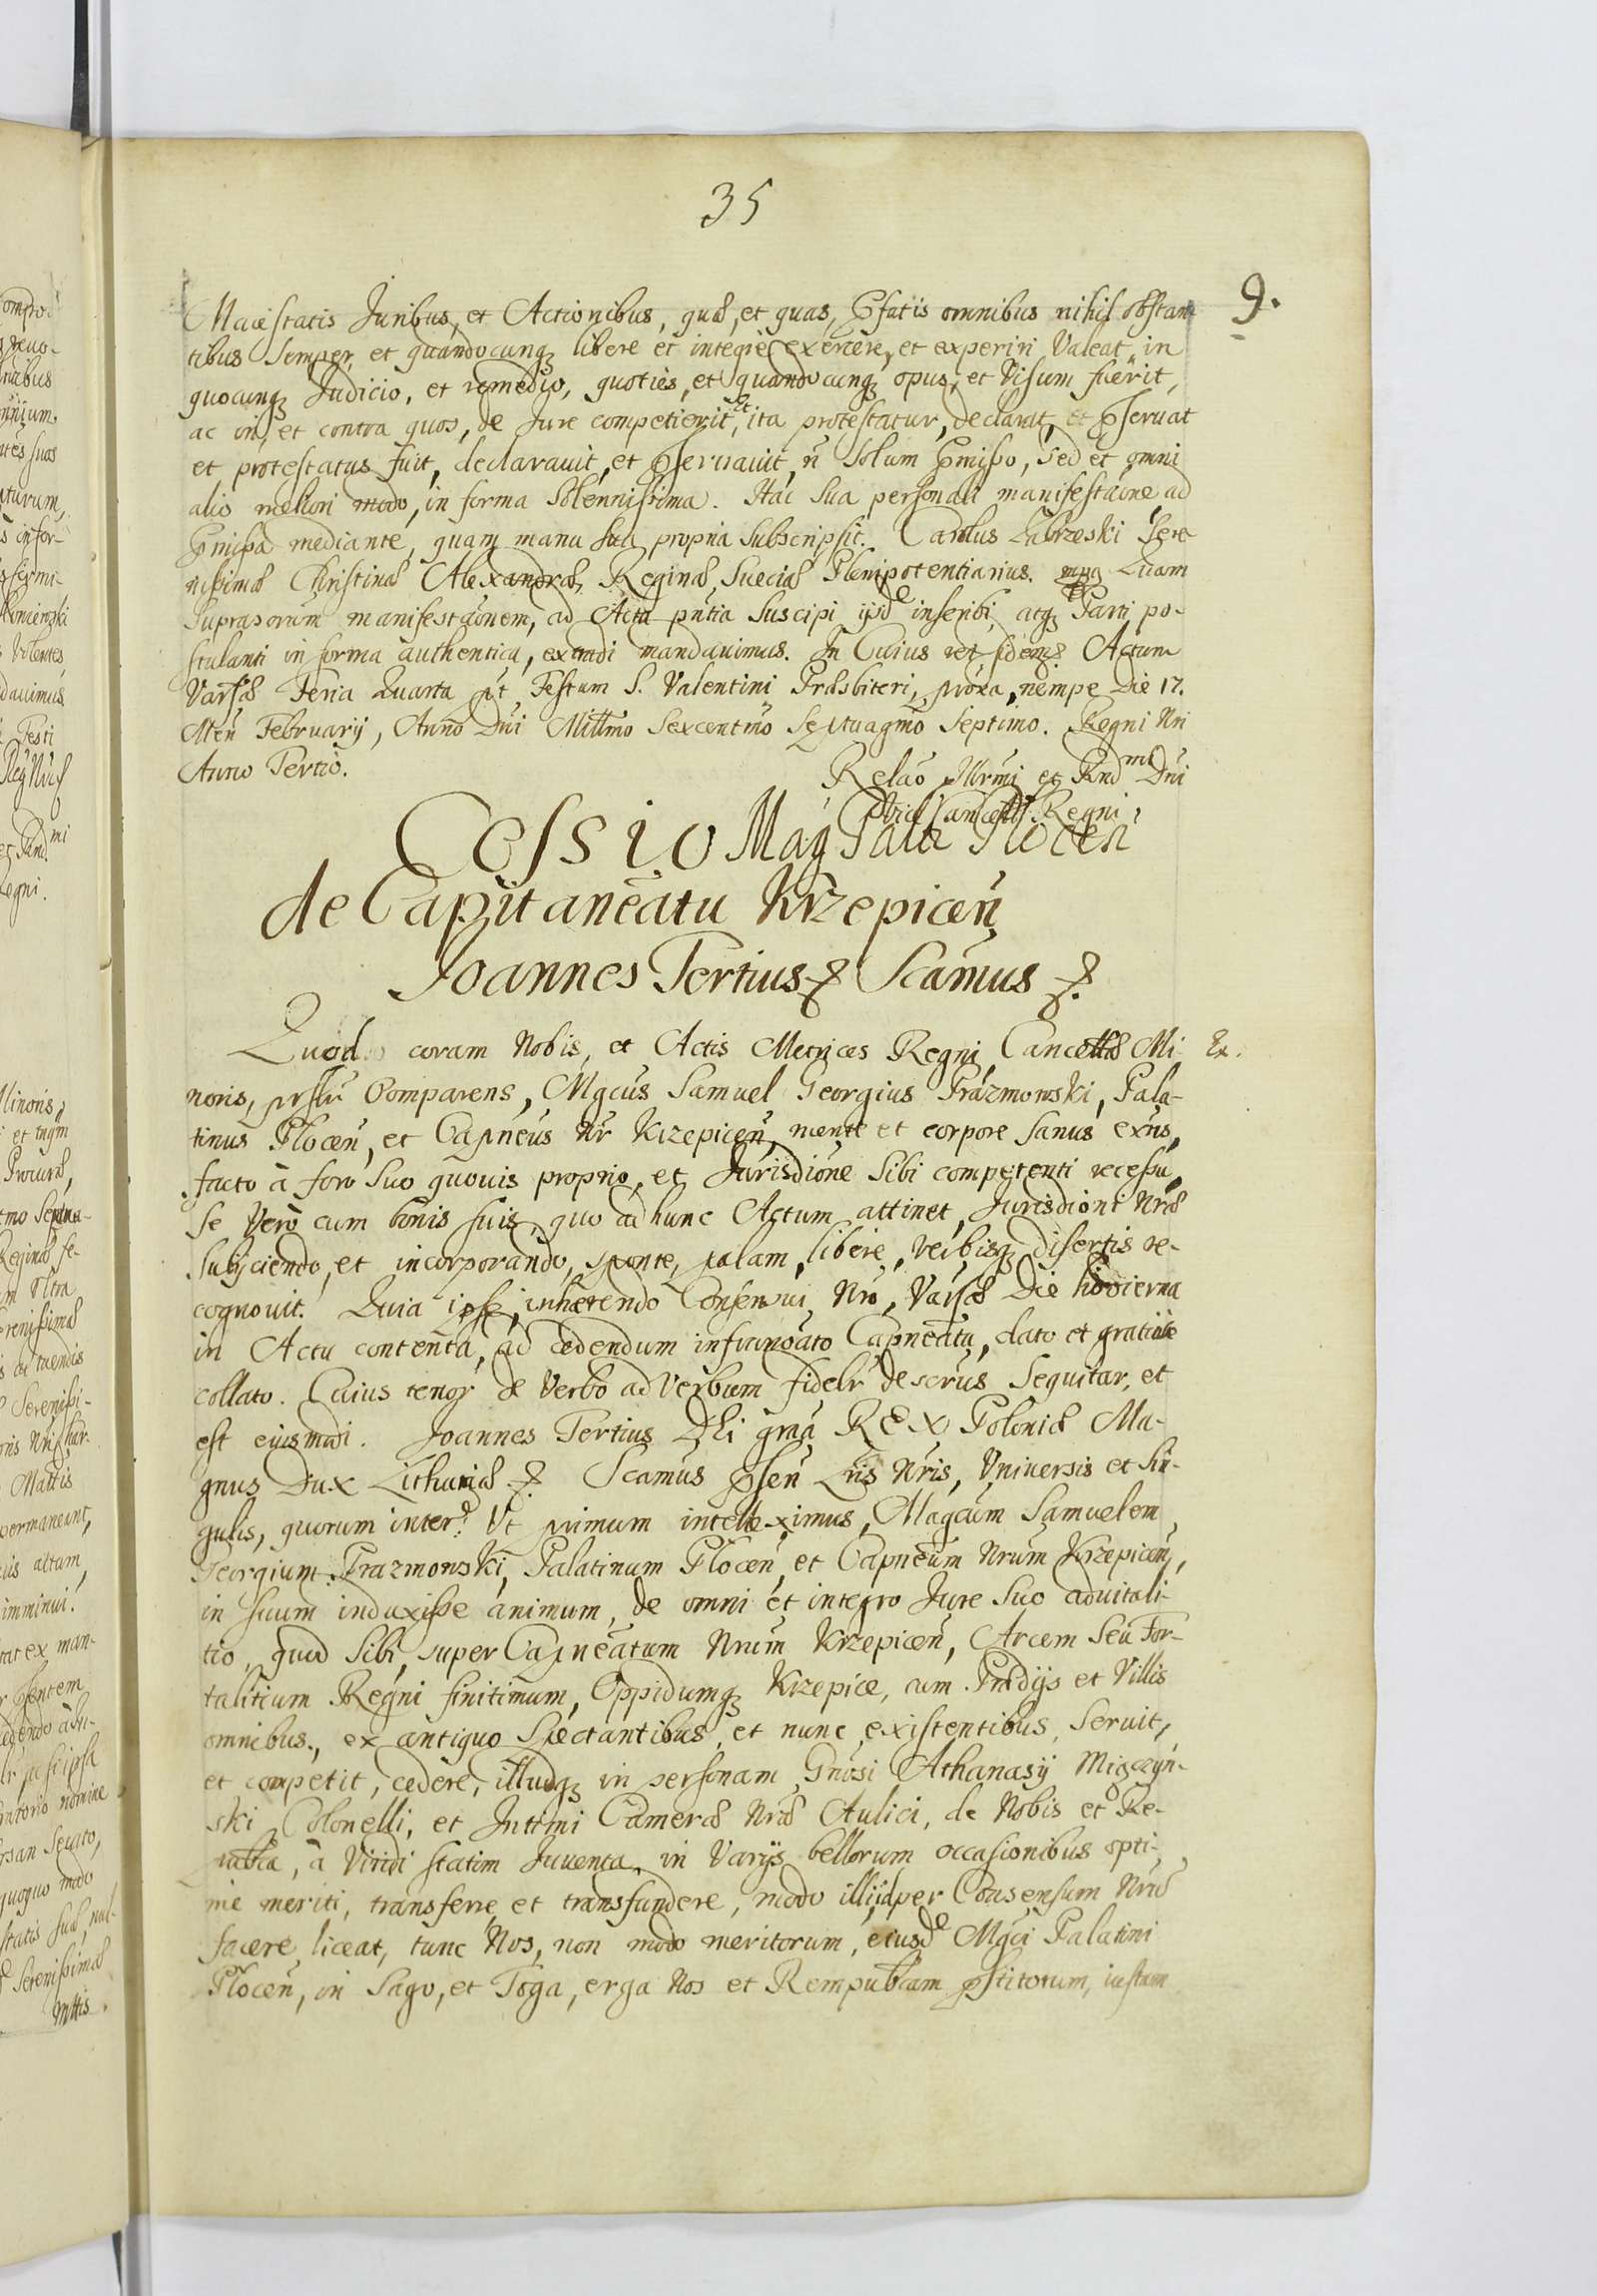 35
9.
Maiestatis Juribus, et Actionibus, quæ, et quas, Pfatis omnibus nihil obstan
tibus Semper, et quandocunqȝ libere et integrè exercere, et experiri Valeat, in
quocunqȝ Judicio, et remedio, quoties, et quandocunqȝ opus, et Visum fuerit,
ac in, et contra quos, de Jure competierit, et ita protestatur, declarat, et Pseruat
et protestatus fuit, declarauit, et Pseruauit, ñ Solum Pmisso, Sed et omni
alio meliori modo, in forma Solennissima. Hac Sua personali manifestãone ad
Pmissa mediante, quam manu Sua propria Subscripsit. Carolus Zabrzeski Sere
nissimæ Christinæ Alexandræ, Reginæ Sueciæ Plenipotentiarius. mpp Quam
Suprasorum manifestãonem, ad Acta pñtia Suscipi ijsdᵉ inscribi, atqȝ Parti po-
stulanti in forma authentica, extradi mandauimus. In Cuius rei fidem Actum
Varsæ Feria Quarta pt Festum S. Valentini Præsbiteri, proxa, nempe Die 17.
Meñ February, Anno Dñi Millmo Sexcentmo Septuagmo Septimo. Regni Nri
Anno Tertio.
Relaõ Illrmi et Rndmi Dñi
Cancell. Regni
Cessio Mag Palat Plocen
de Capitaneatu Krzepiceñ
Joannes Tertius Scamus
Quod coram Nobis, et Actis Metrices Regni, Cancellæ Mi-
Ex.
noris, prslr Comparens, Mgcus Samuel Georgius Prazmowski, Pala-
tinus Ploceñ, et Capneus Nr Krzepiceñ, mente et corpore Sanus exñs,
facto à foro Suo quouis proprio, et Jurisdione Sibi competenti recessu,
Se Verò cum bonis suis, quo ad hunc Actum attinet, Jurisdioni Nræ
Subyciendo, et incorporando, sponte, palam, libere, Verbisqȝ disertis re-
cognouit. Quia ipse, inhærendo Consensui Nro, Varsæ Die hodierna
in Actu contenta, ad cedendum infrandato Capneatu, dato et gratiose
collato. Cuius tenor de Verbo ad Verbum fidelr descrus Sequitur, et
est eiusmodi. Joannes Tertius Dei grãa REX Poloniæ Ma-
gnus Dux Lithuaniæ Scamus Pseñ Lris Nris, Vniversis et Sin-
gulis, quorum interᵉ. Ut primum intelleximus, Magcum Samuelem
Georgium Prazmowski, Palatinum Ploceñ et Capneum Nrum Krzepiceñ,
in suum induxisse animum, de omni et integro Jure Suo aduitali-
tio, quod Sibi super Capneatum Nrum Krzepiceñ, Arcem Seu For-
talitium Regni finitimum, Oppidumqȝ Krzepice, cum Prædijs et Villis
omnibus, ex antiquo Spectantibus, et nunc existentibus, Seruit,
et competit, cedere, illudqȝ in personam Gnosi Athanasy Miączyn-
ski Colonelli, et Intimi Cameræ Nræ Aulici, de Nobis et Re-
publca, à Viridi statim Juuenta, in Varijs bellorum occasionibus opti-
me meriti, transferre et transfundere, modo illud per Consensum Nrũ
facere liceat, tunc Nos, non modo meritorum, eiusdᵉ Mgci Palatini
Ploceñ, in Sago, et Toga, erga Nos et Rempublcam Pstitorum, iustam